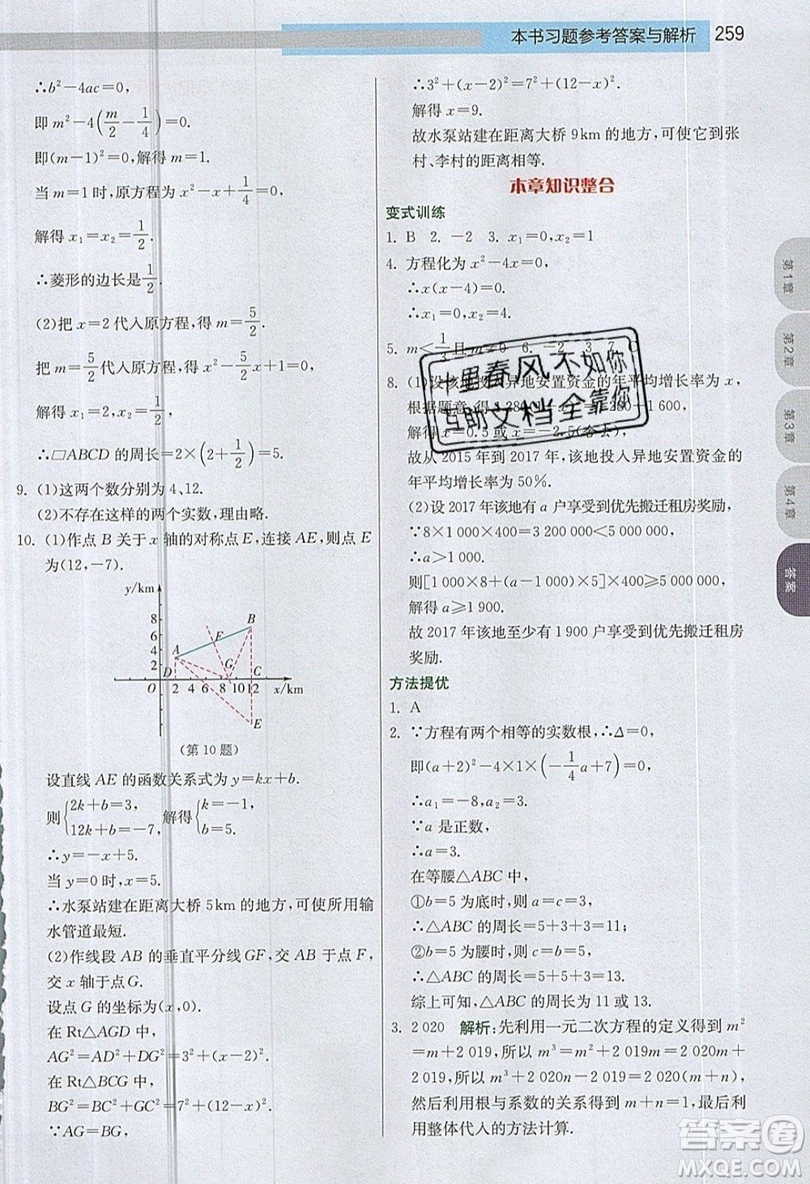 本书习题参考答案与解析 259
∴b²-4ac=0,
即 m²-4(m/2-1/4)=0.
即(m-1)²=0,解得 m=1.
当 m=1 时,原方程为 x²-x+1/4=0,
解得 x₁=x₂=1/2.
∴菱形的边长是1/2.
(2)把 x=2 代入原方程,得 m=5/2.
把 m=5/2代入原方程,得 x²-5/2x+1=0.
解得 x₁=2,x₂=1/2.
∴□ABCD 的周长=2×(2+1/2)=5.
9. (1)这两个数分别为 4、12.
(2)不存在这样的两个实数,理由略.
10. (1)作点 B 关于 x 轴的对称点 E,连接 AE,则点 E
为(12,-7).
y/km
8
6
4
2
A
F
B
D
G
C
E
O 2 4 6 8 10 12 x/km
(第 10 题)
设直线 AE 的函数关系式为 y=kx+b.
则{2k+b=3, 12k+b=-7, 解得{k=-1, b=5.
∴y=-x+5.
当 y=0 时,x=5.
∴水泵站建在距离大桥 5 km 的地方,可使所用输
水管道最短.
(2)作线段 AB 的垂直平分线 GF,交 AB 于点 F,
交 x 轴于点 G.
设点 G 的坐标为(x,0).
在 Rt△AGD 中,
AG²=AD²+DG²=3²+(x-2)².
在 Rt△BCG 中,
BG²=BC²+GC²=7²+(12-x)².
∵AG=BG,
∴3²+(x-2)²=7²+(12-x)².
解得 x=9.
故水泵站建在距离大桥 9 km 的地方,可使它到张
村、李村的距离相等.
本章知识整合
变式训练
1. B 2. -2 3. x₁=0,x₂=1
4. 方程化为 x²-4x=0,
∴x(x-4)=0.
∴x₁=0,x₂=4.
5. m<1/3且 m≠0 6. -2、3 7.
8. (1)设该地投入异地安置资金的年平均增长率为 x,
根据题意,得 1 280(1+x)²=1 280+1 600,
解得 x=0.5 或 x=-2.5(舍去).
故从 2015 年到 2017 年,该地投入异地安置资金的
年平均增长率为 50%.
(2)设 2017 年该地有 a 户享受到优先搬迁租房奖励,
∵8×1 000×400=3 200 000<5 000 000,
∴a>1 000.
则[1 000×8+(a-1 000)×5]×400≥5 000 000,
解得 a≥1 900.
故 2017 年该地至少有 1 900 户享受到优先搬迁租房
奖励.
方法提优
1. A
2. ∵方程有两个相等的实数根,∴Δ=0,
即(a+2)²-4×1×(-1/4a+7)=0,
∴a₁=-8,a₂=3.
∵a 是正数,
∴a=3.
在等腰△ABC 中,
①b=5 为底时,则 a=c=3,
∴△ABC 的周长=5+3+3=11;
②b=5 为腰时,c=b=5,
∴△ABC 的周长=3+5+5=13.
综上可知,△ABC 的周长为 11 或 13.
3. 2 020 解析:先利用一元二次方程的定义得到 m²
=m+2 019,所以 m³=m²+2 019m=2 020m+
2 019,所以 m³+2 020n=2 020m+2 019+2 020n,
然后利用根与系数的关系得到 m+n=1,最后利用
用整体代入的方法计算.
第1章
第2章
第3章
第4章
答案
十里春风不如你
互助文档全靠你
答案圈
MXQE.COM